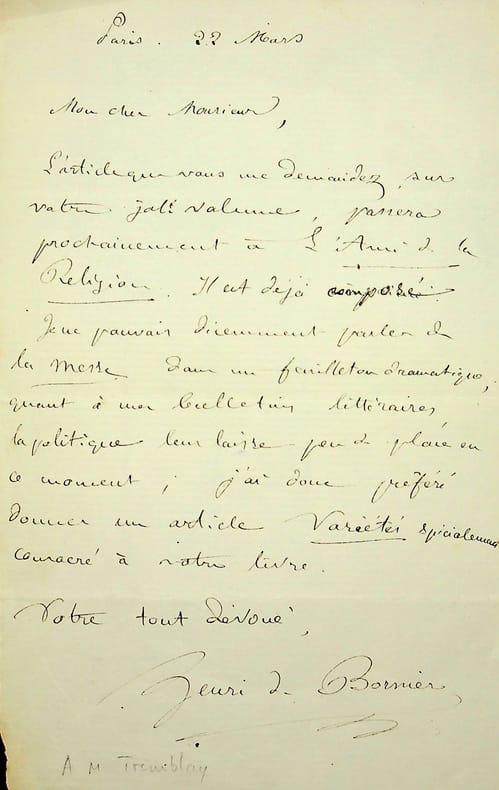 Paris. 22 Mars
Mon cher Monsieur,
L'article que vous me demandez, sur
votre joli volume, passera
prochainement à L'Ami de la
Religion. Il est déjà composé.
Je ne pouvais décemment parler de
la messe dans un feuilleton dramatique,
quant à mes bulletins littéraires
la politique leur laisse peu de place en
ce moment ; j'ai donc préféré
donner un article Variétés spécialement
consacré à votre livre.
Votre tout dévoué,
Henri de Bornier
A M Tremblay